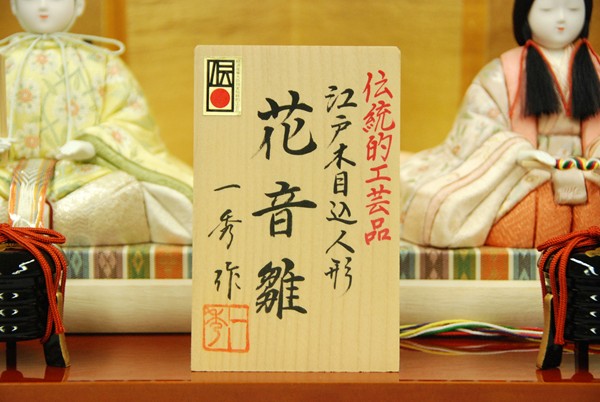 伝統的工芸品
江戸木目込人形
花音雛
一秀作
伝
一秀